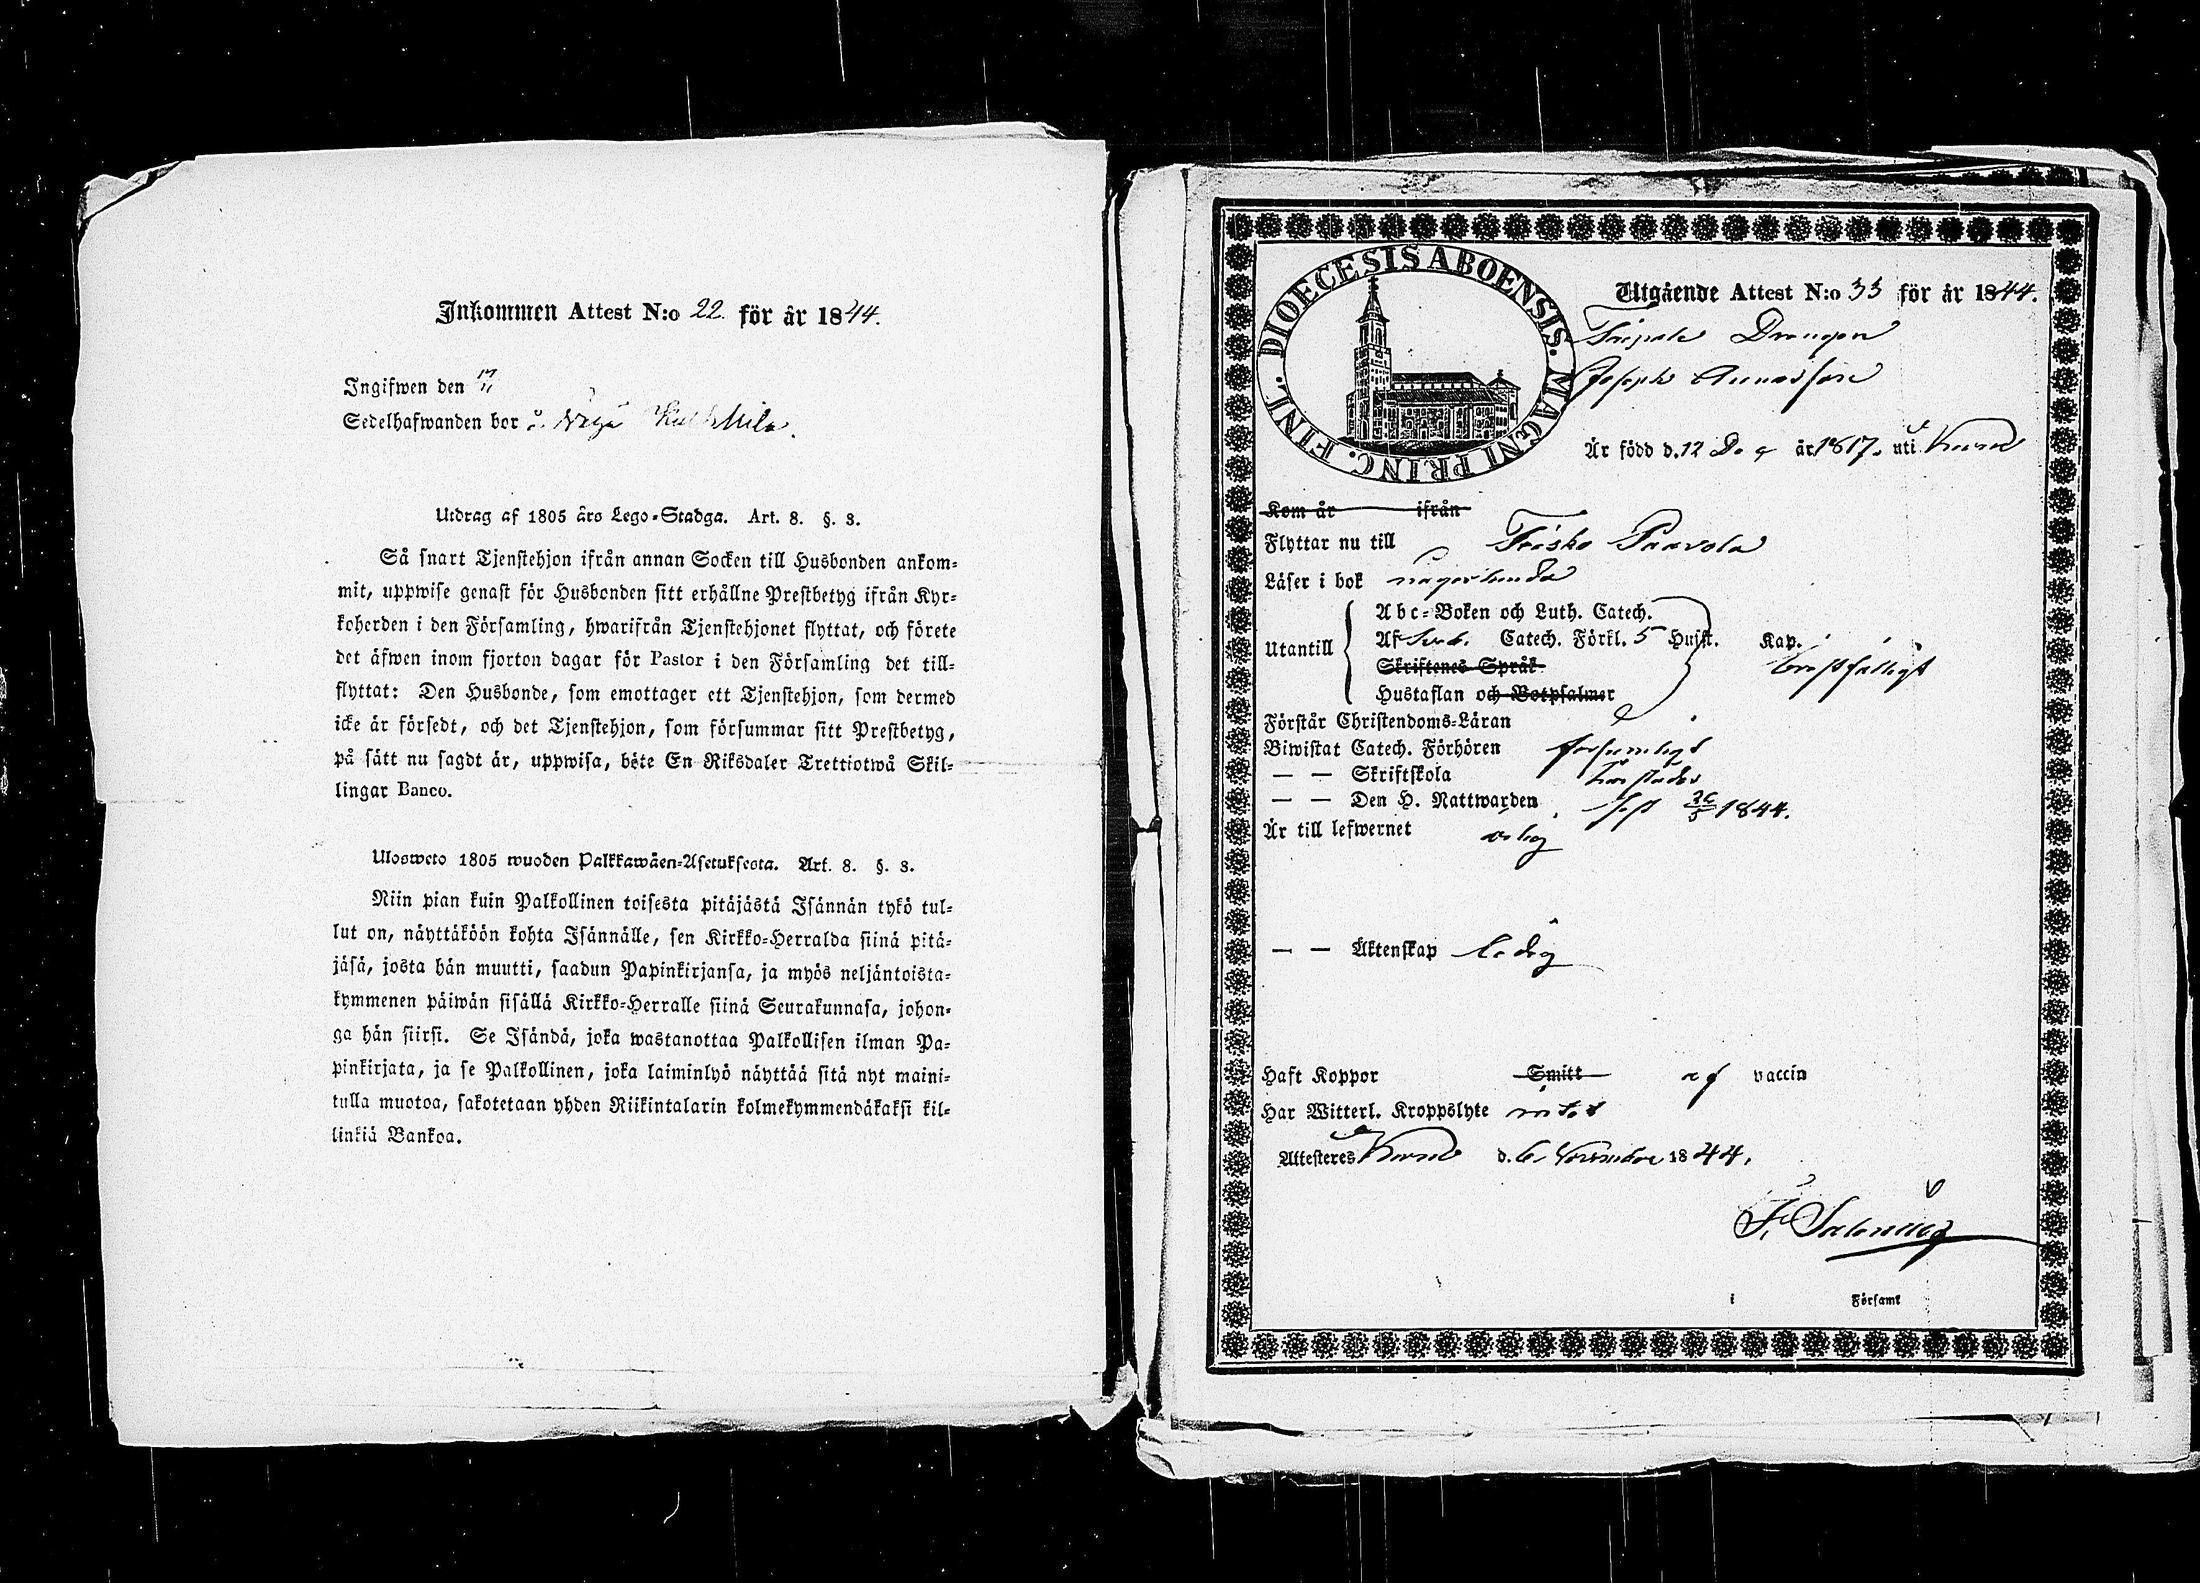 Inkommen Attest N:o 22. för år 1844.
Ingifwen den 17/11
Sedelhafwanden bor
Utdrag af 1805 års Lego-Stadga. Art. 8. §. 3.
Så snart Tjenstehjon ifrån annan Socken till Husbonden ankom-
mit, uppwise genast för Husbonden sitt erhållne Prestbetyg ifrån Kyr-
koherden i den Församling, hwarifrån Tjenstehjonet flyttat, och förete
det äfwen inom fjorton dagar för Pastor i den Församling det till-
flyttat: Den Husbonde, som emottager ett Tjenstehjon, som dermed
icke är försedt, och det Tjenstehjon, som försummar sitt Prestbetyg,
på sätt nu sagdt är, uppwisa, böte En Riksdaler Trettiotwå Skil-
lingar Banco.
Ulosweto 1805 wuoden Palkkawäen-Asetuksesta. Art. 8. §. 3.
Niin pian kuin Palkollinen toisesta pitäjästä Isännän tykö tul-
lut on, näyttäköön kohta Isännälle, sen Kirkko-Herralda siinä pitä-
jäsä, josta hän muutti, saadun Papinkirjansa, ja myös neljäntoista-
kymmenen päiwän sisällä Kirkko-Herralle siinä Seurakunnasa, johon-
ga hän siirsi. Se Isändä, joka wastanottaa Palkollisen ilman Pa-
pinkirjata, ja se Palkollinen, joka laiminlyö näyttää sitä nyt maini-
tulla muotoa, sakotetaan yhden Riikintalarin kolmekymmendäkaksi kil-
linkiä Bankoa.
DIOECESIS ABOENSIS. MAGNI PRINC. FINL.
Utgående Attest N:o 33 för år 1844.
Drengen
Joseph
Är född d. 12 år 1817. uti
Kom år ifrån
Flyttar nu till Paavola
Läser i bok någorlunda
Utantill
Abc-Boken och Luth. Catech.
Af Catech. Förkl. 5 Hufst. Kap.
Skriftenes Språk
Hustaflan och Botpsalmer
Förstår Christendoms-Läran
Biwistat Catech. Förhören försumligt
— — Skriftskola
— — Den H. Nattwarden sist 26/5 1844.
Är till lefwernet ärlig
— — Äktenskap ledig
Haft Koppor Smitt af vaccin
Har Witterl. Kroppslyte intet
Attesteres d. 6 November 1844.
i Församl